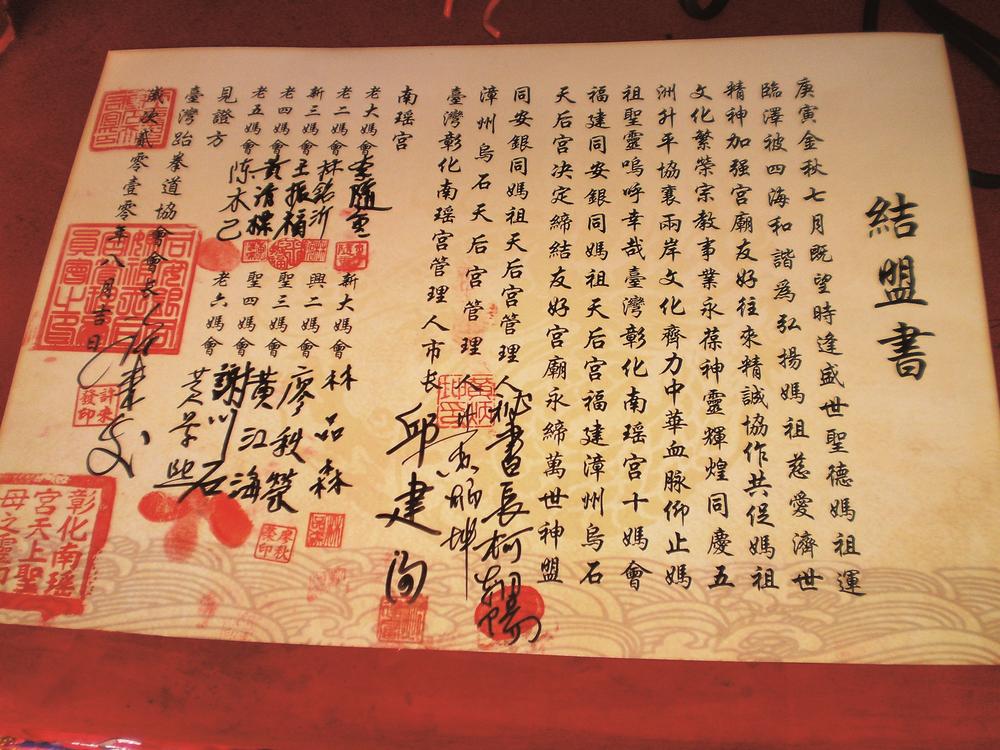 結盟書
庚寅金秋七月既望時逢盛世聖德媽祖運
臨澤被四海和諧為弘揚媽祖慈愛濟世
精神加强宫廟友好往來精誠協作共促媽祖
文化繁榮宗教事業永葆神靈輝煌同慶五
洲升平協襄兩岸文化齊力中華血脉仰止媽
祖聖靈嗚呼幸哉臺灣彰化南瑶宫十媽會
福建同安銀同媽祖天后宫福建漳州烏石
天后宫决定締結友好宫廟永締萬世神盟
同安銀同媽祖天后宫管理人 秘書長柯翱
漳州烏石天后宫管理人
臺灣彰化南瑶宫管理人市長 邱建
南瑶宫
老大媽會 新大媽會 林品森
老二媽會 林銘沂 興二媽會 廖秋榮
新三媽會 王振福 聖三媽會 黄江海
老四媽會 黄清標 聖四媽會 謝川石
老五媽會 陳木己 老六媽會
見證方
臺灣跆拳道協會會長
歲次貳零壹零年八月吉日
許來發印
廖秋榮印
彰化南瑶宫天上聖母之靈